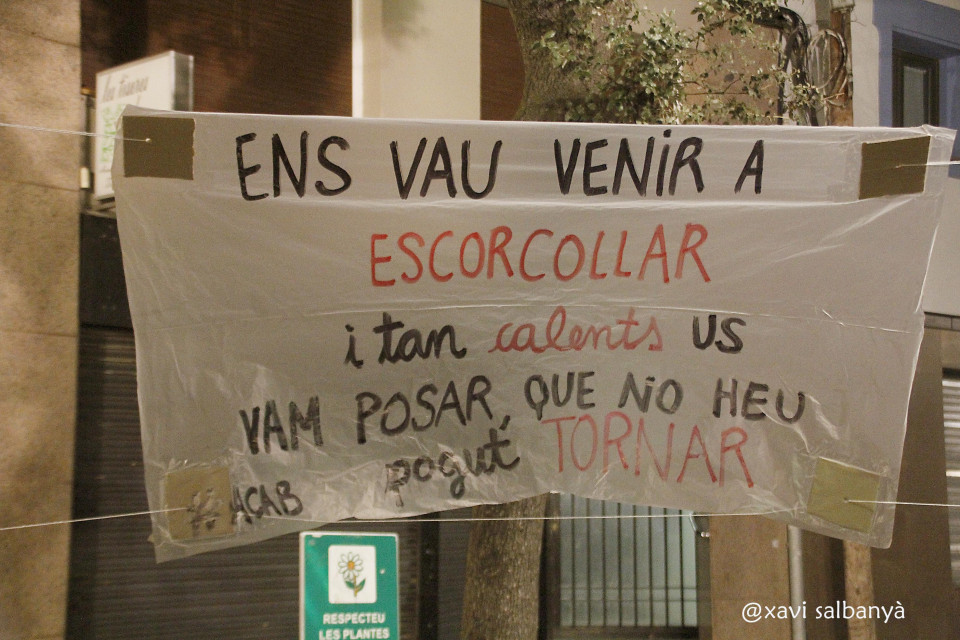 ENS VAU VENIR A
ESCORCOLLAR
i tan calents us
VAM POSAR, QUE NO HEU
pogut TORNAR
ACAB
RESPECTEU
LES PLANTES
@xavi salbanyà